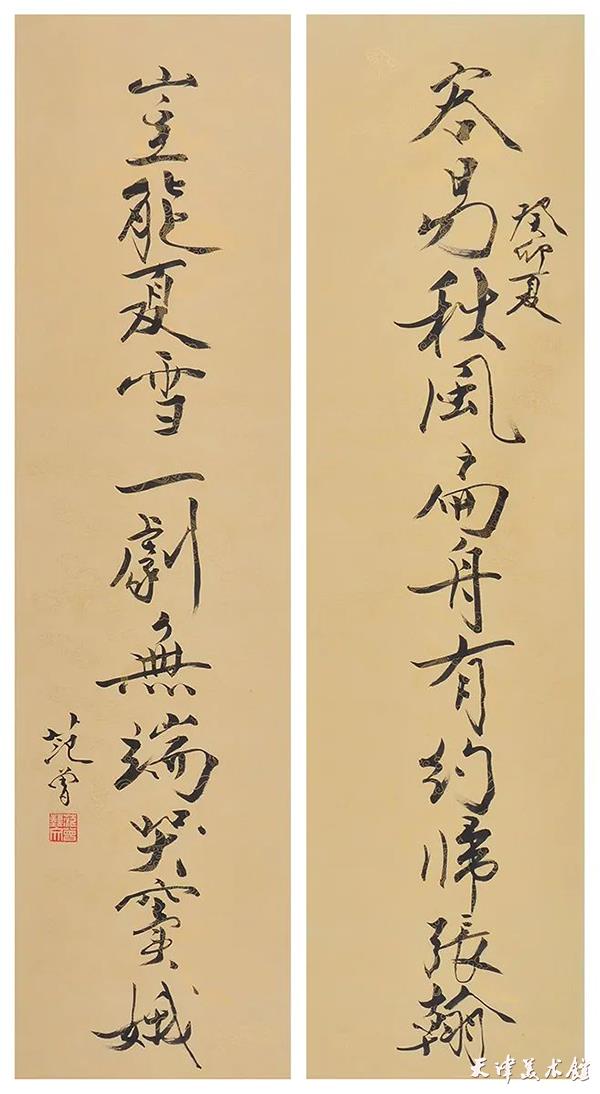 容易秋風扁舟有約歸張翰
癸卯夏
豈能夏雪一劇無端哭竇娥
范曾
天津美術館